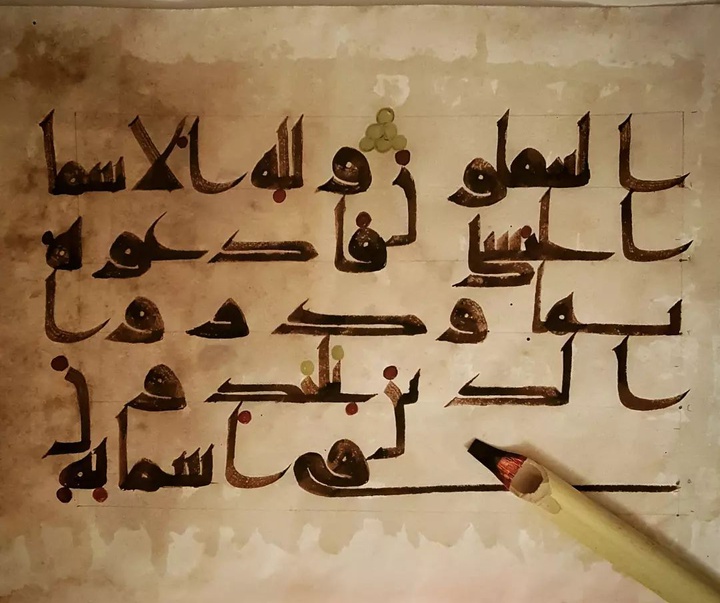 الغفلون ولله الاسما
الحسنى فادعوه
بها وذروا
الذين يلحدون
في اسمايه